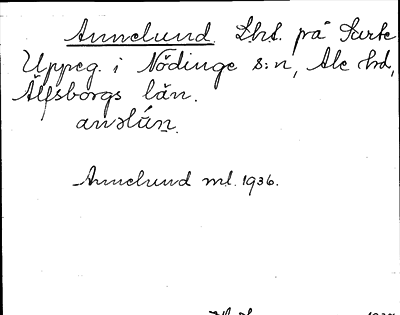 Annelund Lht. på Surte
Uppeg. i Nödinge s:n, Ale hd,
Älfsborgs län.
Annelund ml. 1936.